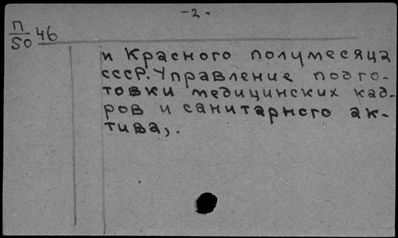 -2-
П
50 46
и Красного полумесяца
СССР. Управление подго-
товки медицинских кад-
ров и санитарного ак-
тива).